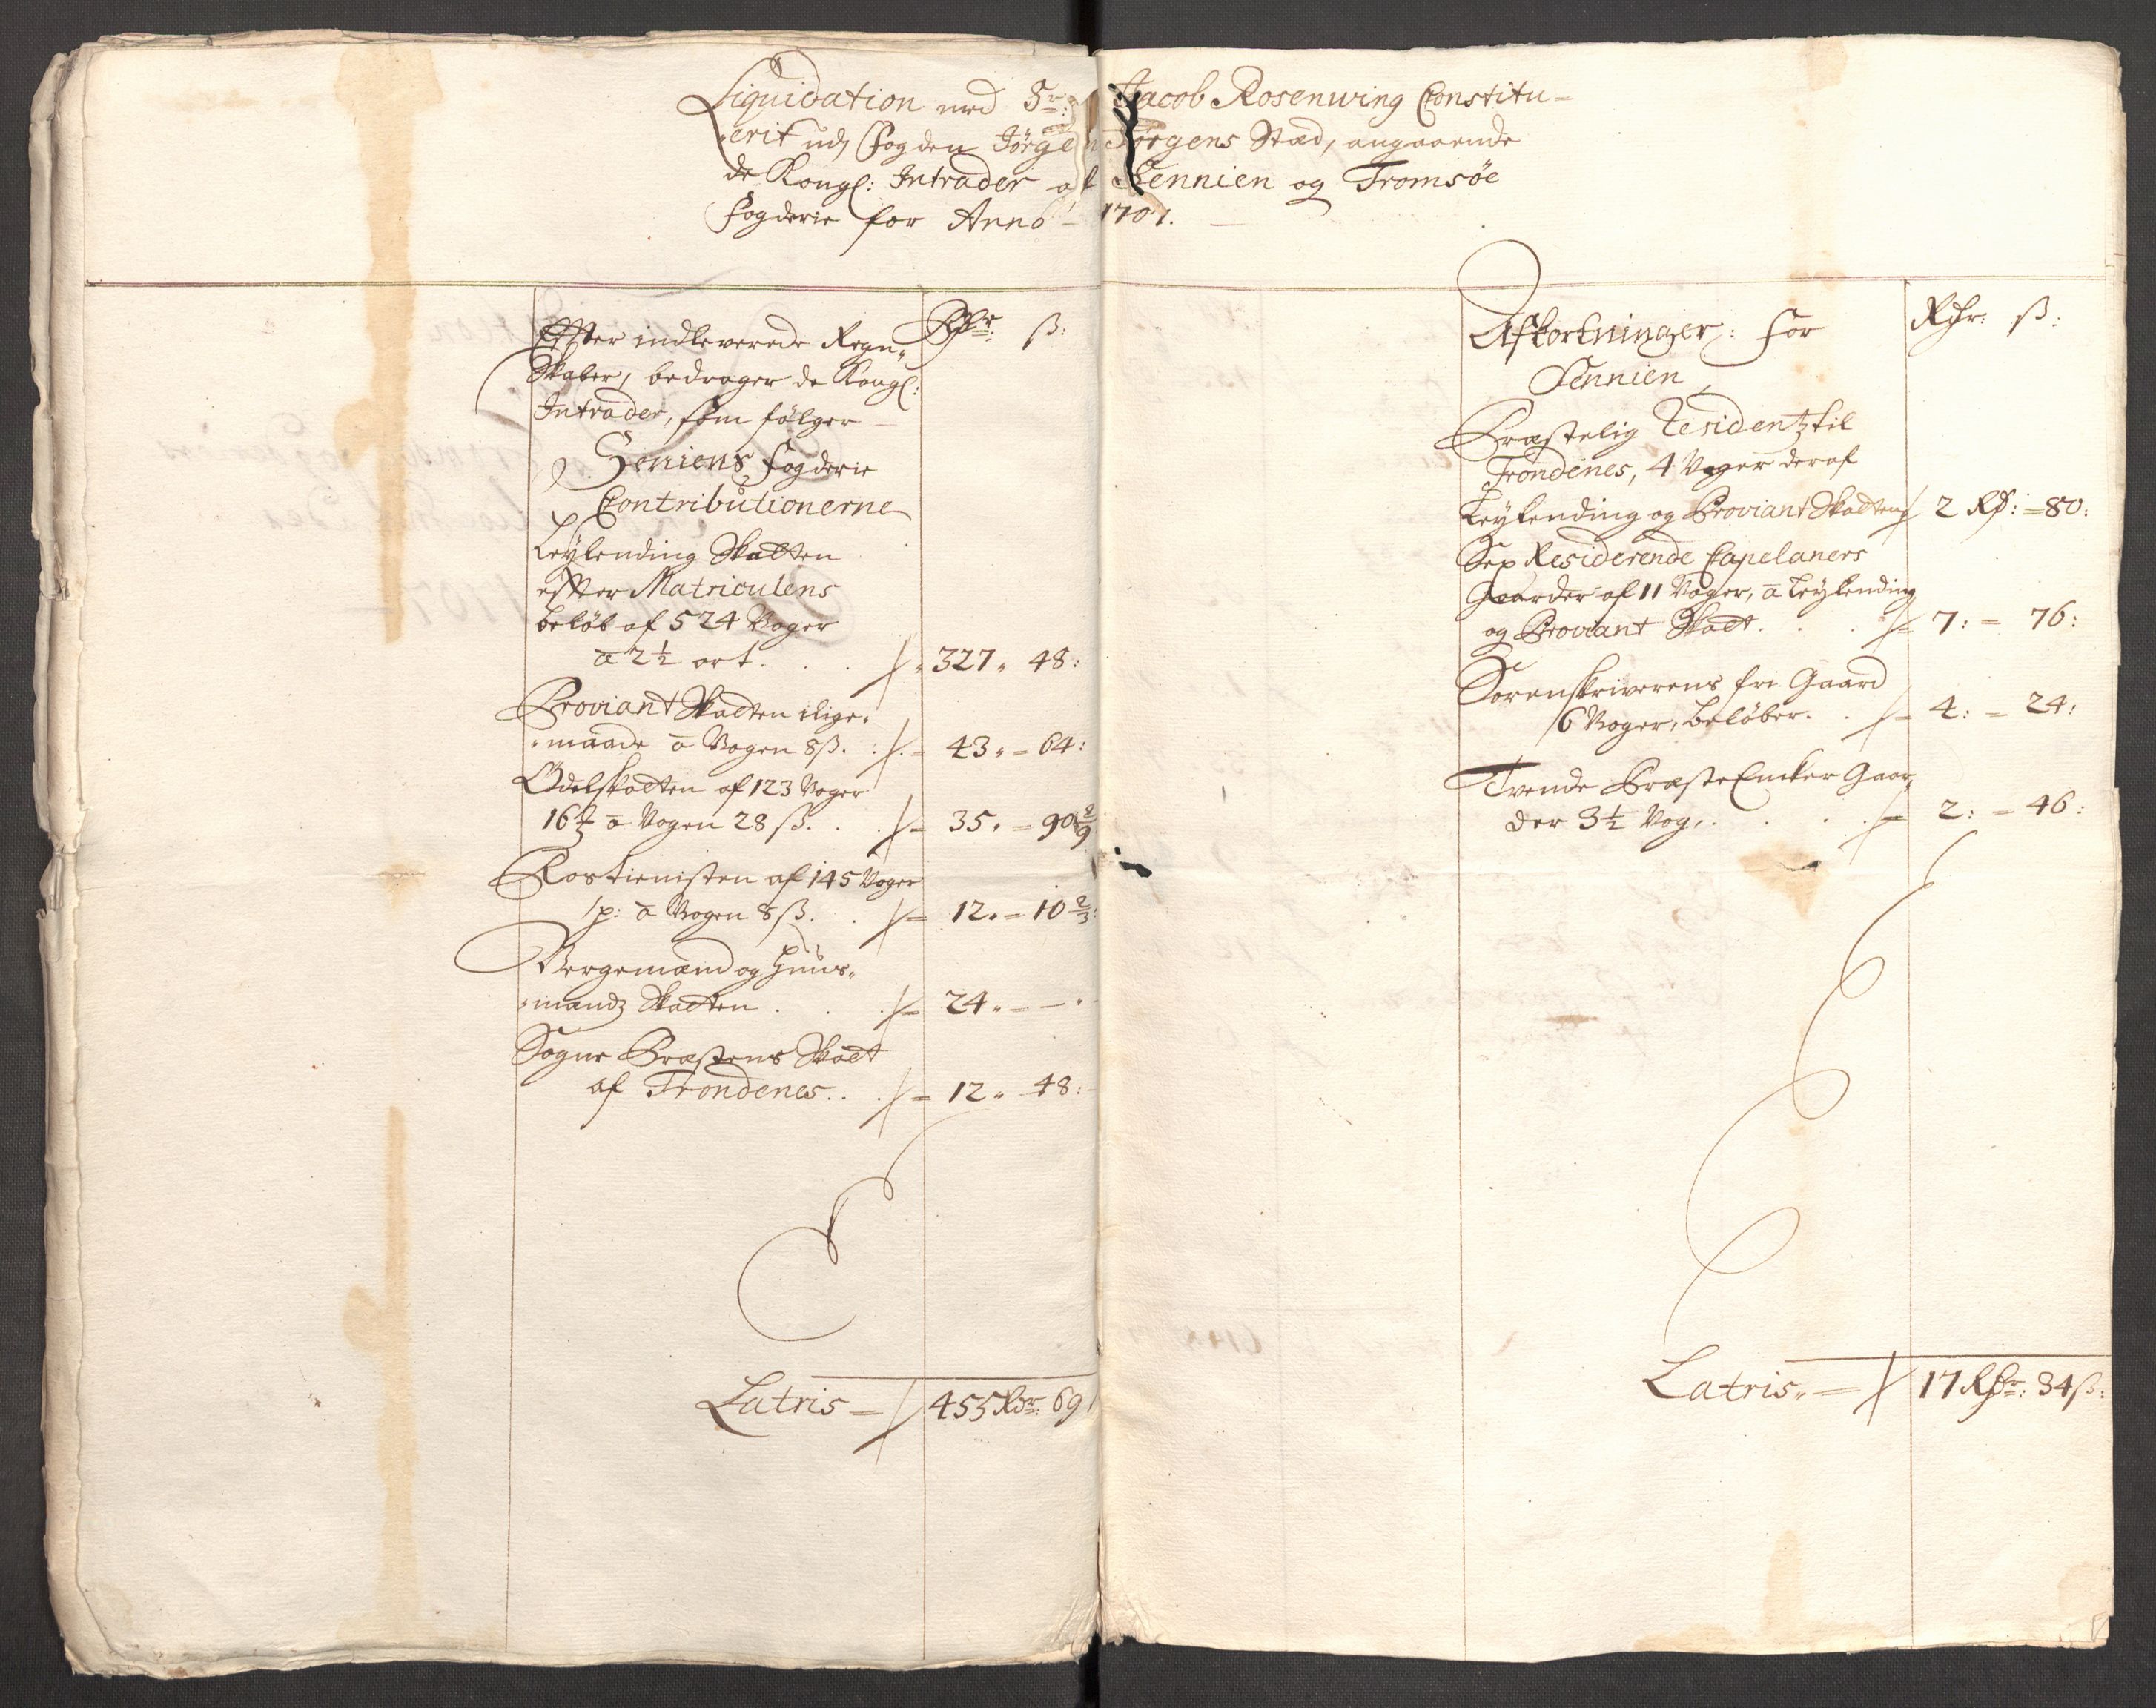 Liquidation med Sr: Jacob Rosenwing Constitu-
erit udj Fogden Jørgen Jørgens Stæd, angaaende
de Kongl: Intrader af Sennien og Tromsøe
Fogderie for Anno 1701.
Rdr: ß:
Effter indleverede Regn-
skaber, bedrager de Kongl:
Intrader, som følger
Seniens Fogderie
Contributionerne
Leylending Skatten
effter Matriculens
beløb af 524 Voger
a 2½ ort. . . 327 „ 48:
Proviant Skatten ilige-
maade a Vogen 8ß. : 43 „ 64:
Odelskatten af 123 Voger
16 a Vogen 28 ß. . . 35 „ 90 2/9
Rostienisten af 145 Voger
1p: a Vogen 8 ß. . 12 „ 10 2/3:
Borgemænd og Huus-
mandz Skatten . . . 24 „ —
Sogne Præstens Skatt
af Trondenes. . . 12 „ 48:
Latris 455 Rdr: 69
Rdr: ß:
Afkortninger: for
Sennien
Præstelig Residentz til
Trondenes, 4 Voger deraf
Leylending og Proviant Skatten 2 Rd: 80:
Residerende Capelaners
Gaarder af 11 Voger, a Leylending
og Proviant Skatt. . . 7: 76:
Sorenskriverens fri Gaard
6 Voger, beløber. . 4: 24:
Tvende Præste Encker Gaar-
der 3½ Vog, . . . 2: 46:
Latris 17 Rdr: 34 ß: